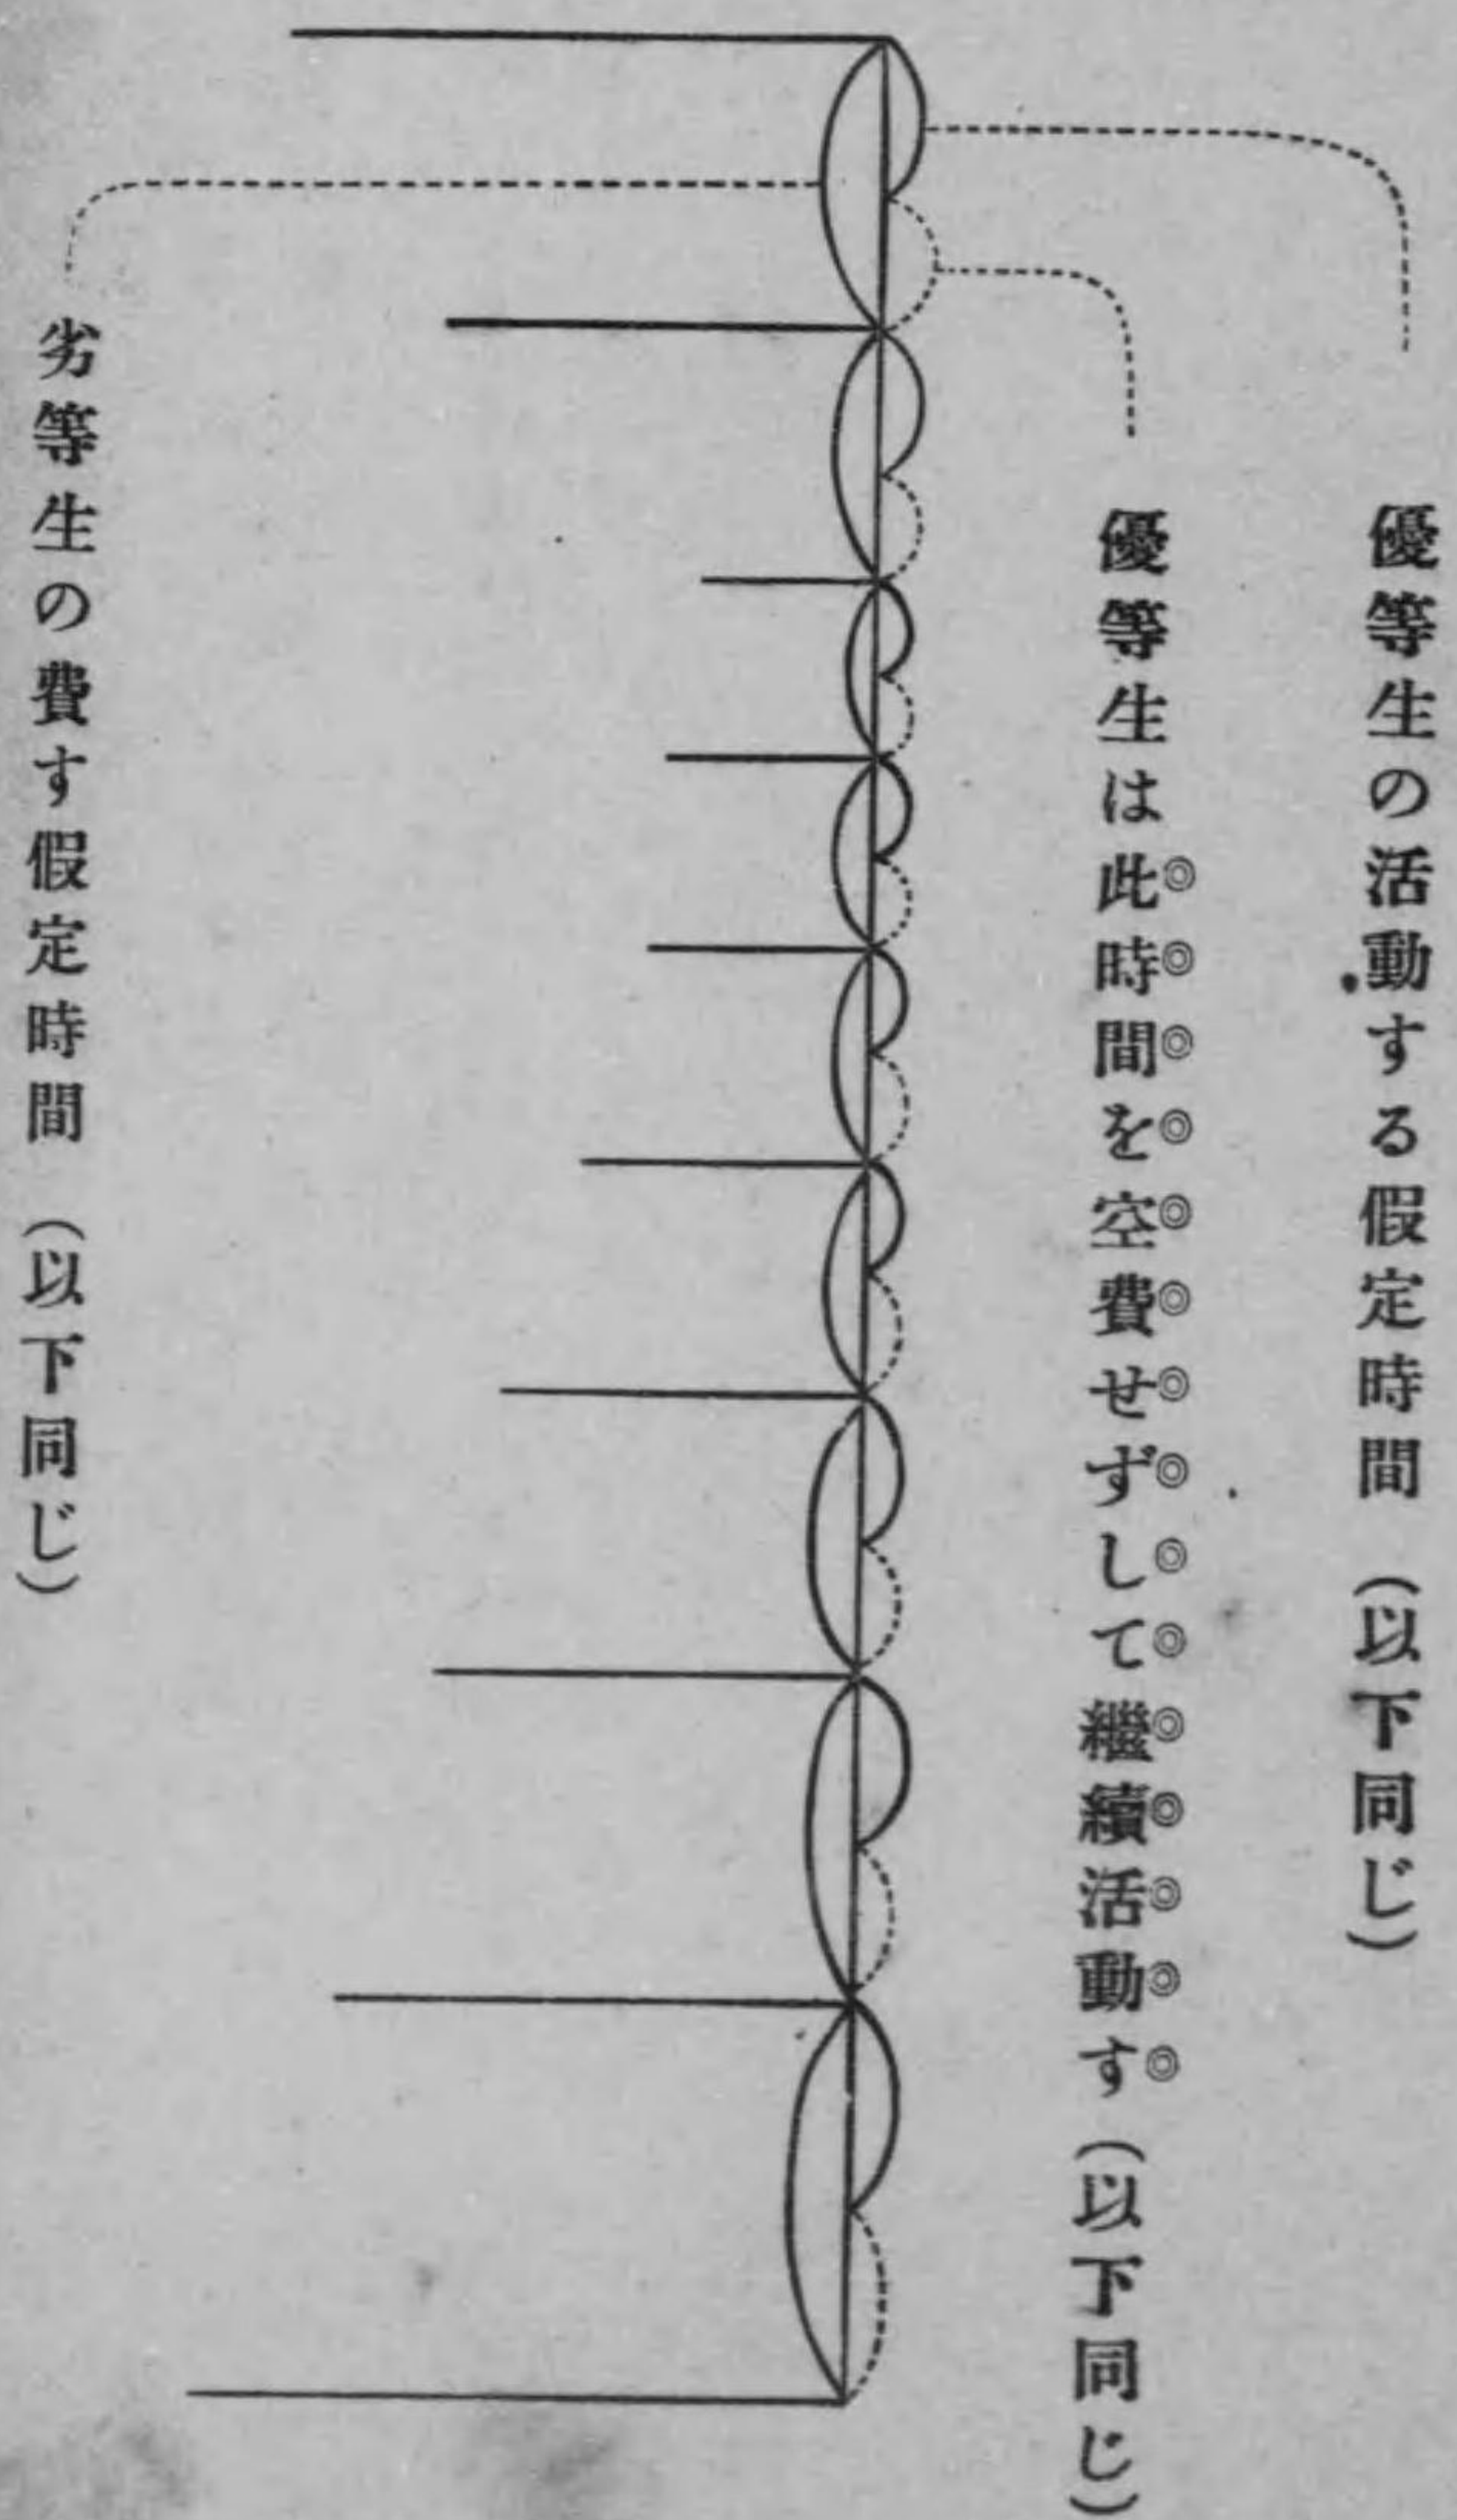 優等生の活動する假定時間（以下同じ）
優等生は此時間を空費せずして繼續活動す（以下同じ）
劣等生の費す假定時間（以下同じ）